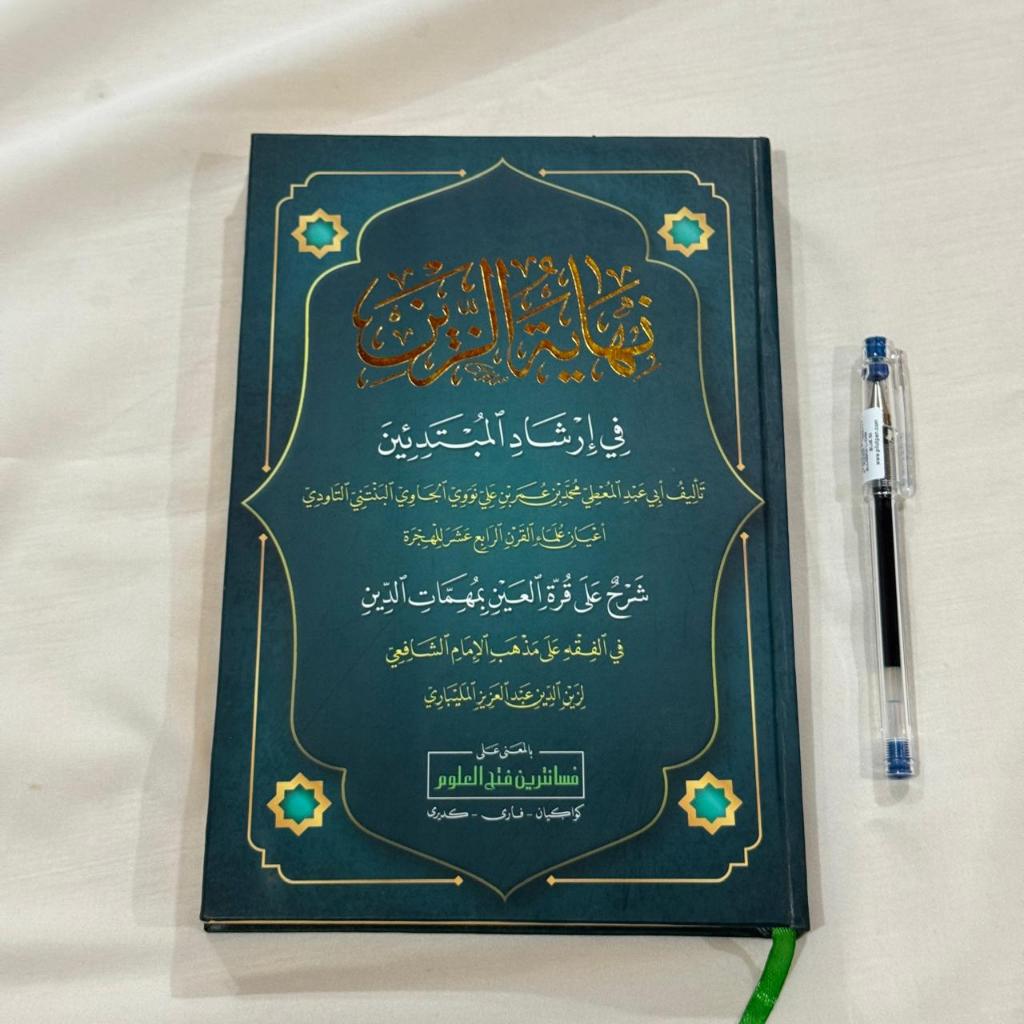 نِهَايَةُ الزَّيْنِ
فِي إِرْشَادِ الْمُبْتَدِئِينَ
تَأْلِيفُ أَبِي عَبْدِ الْمُعْطِيْ مُحَمَّدِ بْنِ عُمَرَ بْنِ عَلِيْ نَوَوِيْ الْجَاوِيْ الْبَنْتَنِيْ التَّاوِدِيْ
أَعْيَانِ عُلَمَاءِ القَرْنِ الرَّابِعِ عَشَرَ لِلْهِجْرَةِ
شَرْحٌ عَلَى قُرَّةِ الْعَيْنِ بِمُهِمَّاتِ الدِّينِ
فِي الْفِقْهِ عَلَى مَذْهَبِ الْإِمَامِ الشَّافِعِيْ
لِزَيْنِ الدِّينِ عَبْدِ الْعَزِيزِ الْمَلَيْبَارِيّ
بالمعنى على
فسانترين فتح العلوم
كواكيان - فارى - كديرى
www.pilotpen.com